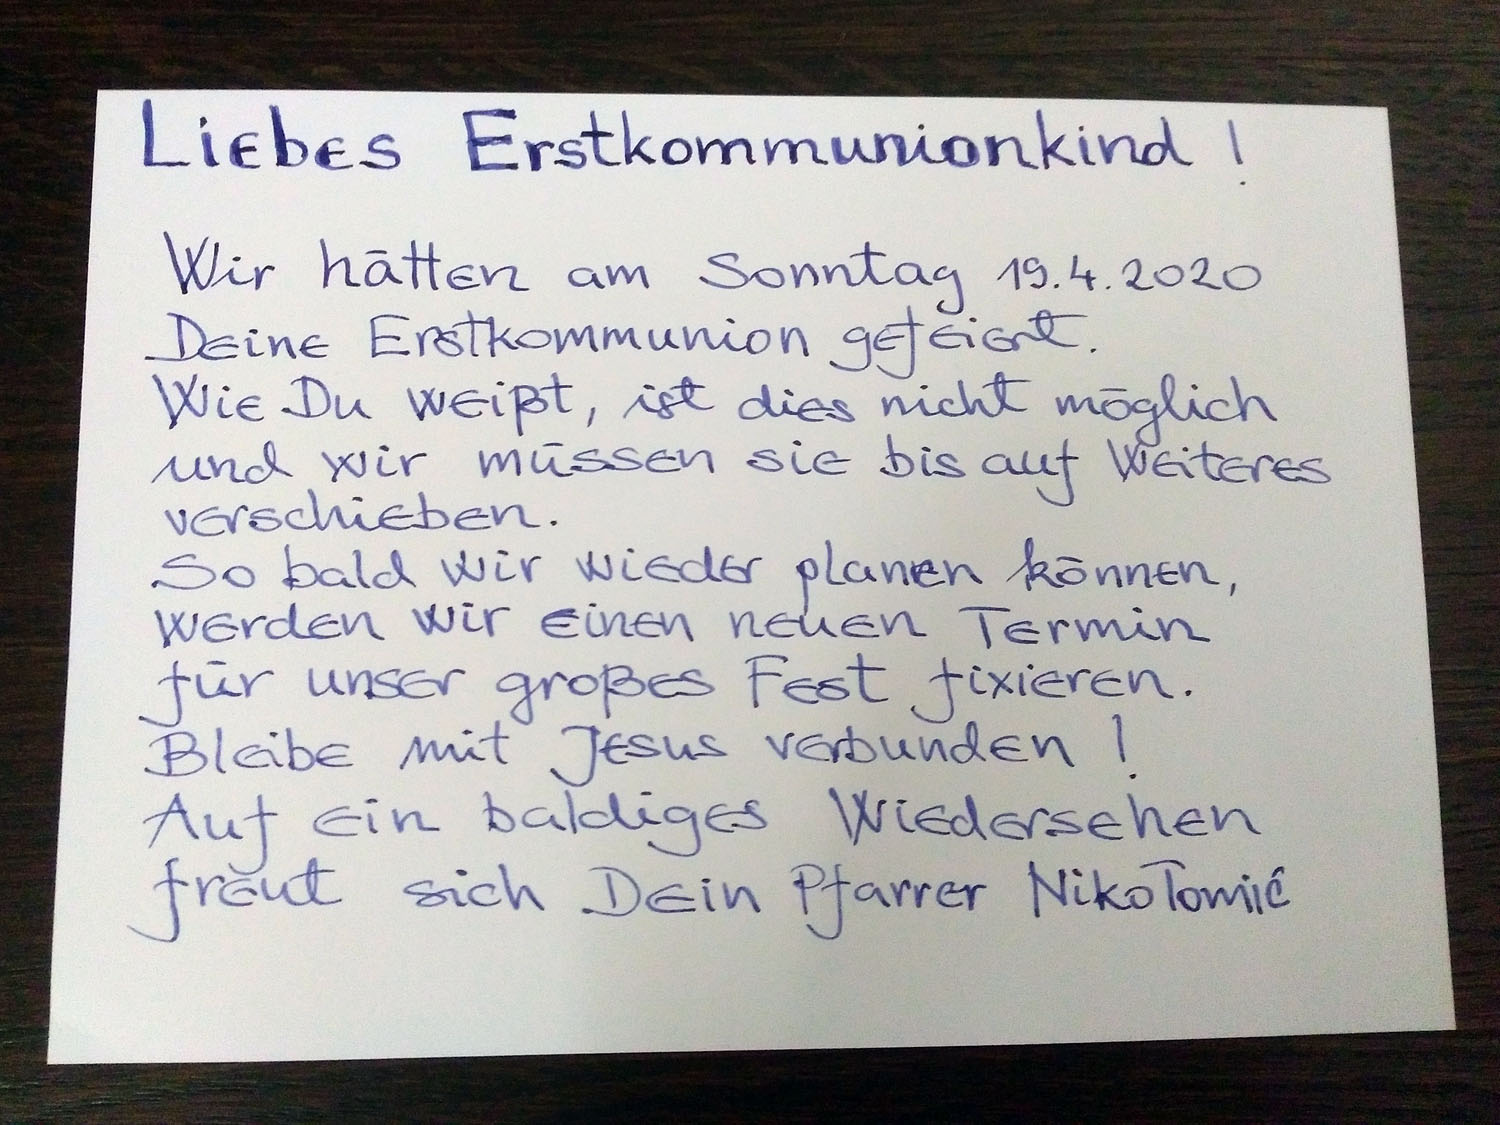 Liebes Erstkommunionkind !
Wir hätten am Sonntag 19.4.2020
Deine Erstkommunion gefeiert.
Wie Du weißt, ist dies nicht möglich
und wir müssen sie bis auf Weiteres
verschieben.
So bald wir wieder planen können,
werden wir einen neuen Termin
für unser großes Fest fixieren.
Bleibe mit Jesus verbunden !
Auf ein baldiges Wiedersehen
freut sich Dein Pfarrer Niko Tomić